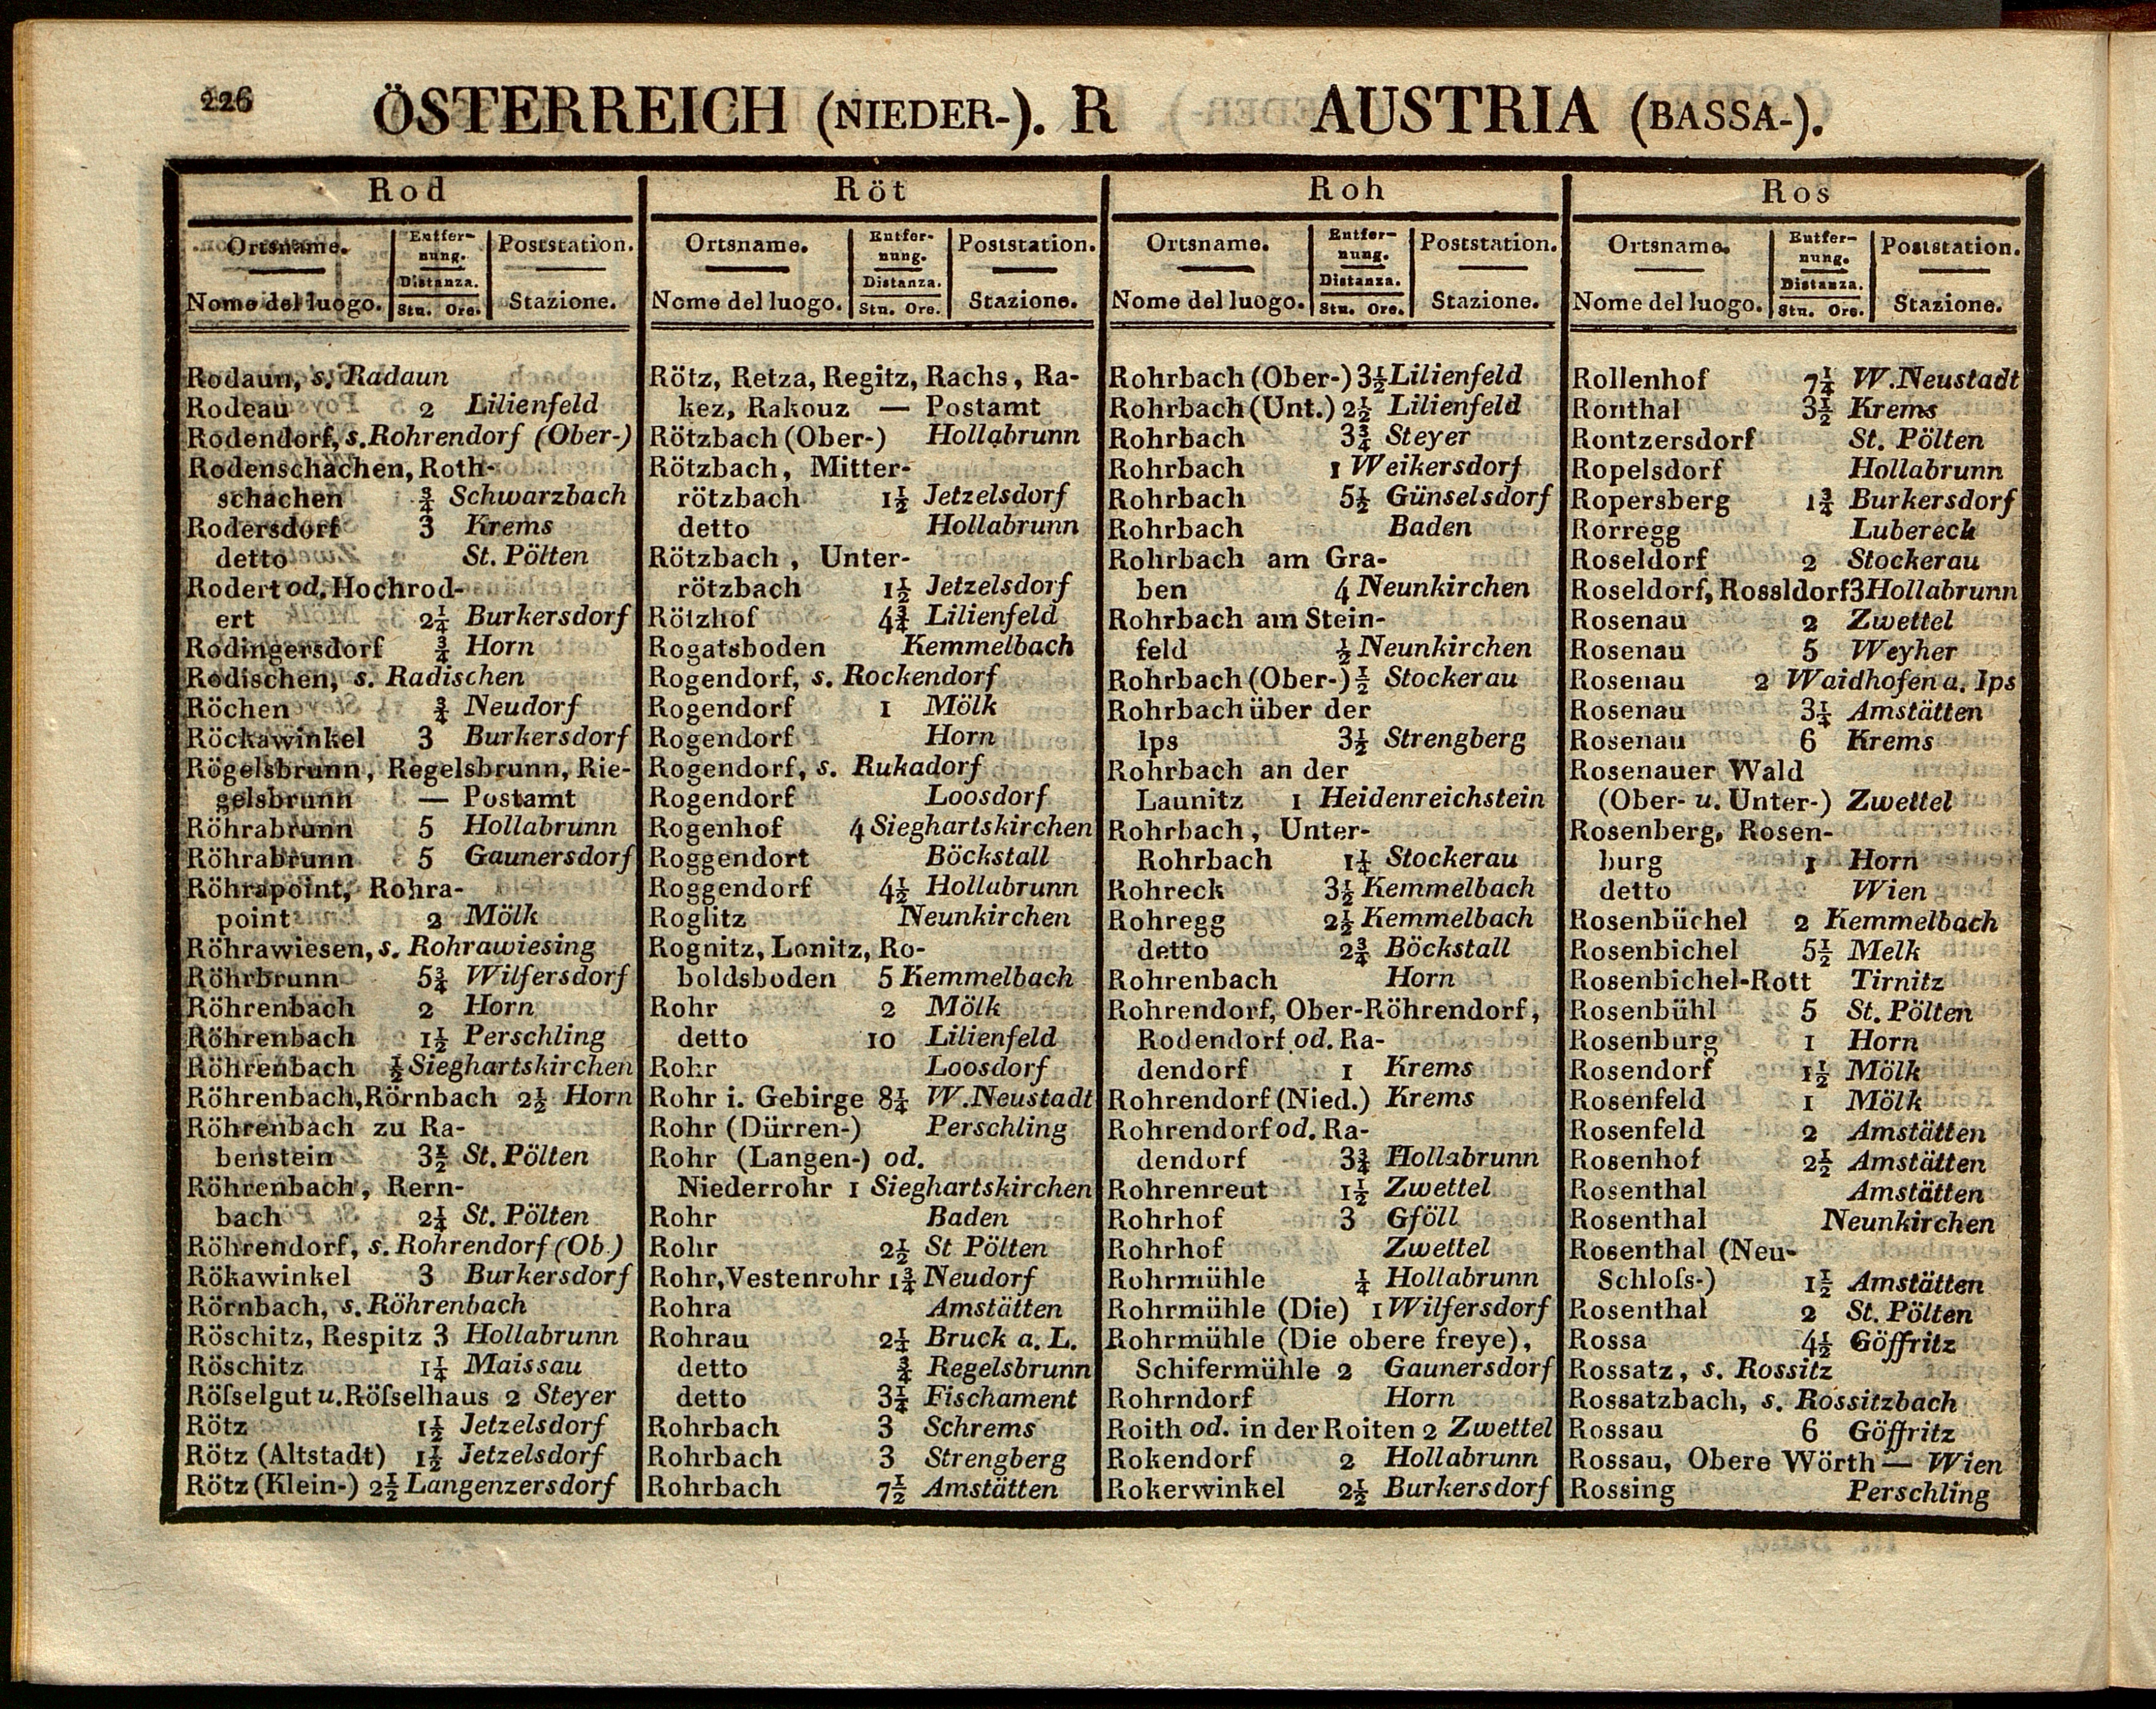 226
ÖSTERREICH (NIEDER-). R AUSTRIA (BASSA-).
Rod
Ortsname. Entfer- Poststation.
nung.
Distanza.
Nome del luogo. Stu. Ore. Stazione.
Rodaun, s. Radaun
Rodeau 2 Lilienfeld
Rodendorf, s. Rohrendorf (Ober-)
Rodenschachen, Roth-
schachen ¾ Schwarzbach
Rodersdorf 3 Krems
detto St. Pölten
Rodert od. Hochrod-
ert 2¼ Burkersdorf
Rodingersdorf ¾ Horn
Rodischen, s. Radischen
Röchen ¾ Neudorf
Röckawinkel 3 Burkersdorf
Rögelsbrunn, Regelsbrunn, Rie-
gelsbrunn — Postamt
Röhrabrunn 5 Hollabrunn
Röhrabrunn 5 Gaunersdorf
Röhrapoint, Rohra-
point 2 Mölk
Röhrawiesen, s. Rohrawiesing
Röhrbrunn 5¾ Wilfersdorf
Röhrenbach 2 Horn
Röhrenbach 1½ Perschling
Röhrenbach ½ Sieghartskirchen
Röhrenbach, Rörnbach 2½ Horn
Röhrenbach zu Ra-
benstein 3½ St. Pölten
Röhrenbach, Rern-
bach 2¼ St. Pölten
Röhrendorf, s. Rohrendorf (Ob.)
Rökawinkel 3 Burkersdorf
Rörnbach, s. Röhrenbach
Röschitz, Respitz 3 Hollabrunn
Röschitz 1¼ Maissau
Röſselgut u. Röſselhaus 2 Steyer
Rötz 1½ Jetzelsdorf
Rötz (Altstadt) 1½ Jetzelsdorf
Rötz (Klein-) 2½ Langenzersdorf
Röt
Ortsname. Entfer- Poststation.
nung.
Distanza.
Nome del luogo. Stu. Ore. Stazione.
Rötz, Retza, Regitz, Rachs, Ra-
kez, Rakouz — Postamt
Rötzbach (Ober-) Hollabrunn
Rötzbach, Mitter-
rötzbach 1½ Jetzelsdorf
detto Hollabrunn
Rötzbach, Unter-
rötzbach 1½ Jetzelsdorf
Rötzhof 4¾ Lilienfeld
Rogatsboden Kemmelbach
Rogendorf, s. Rockendorf
Rogendorf 1 Mölk
Rogendorf Horn
Rogendorf, s. Rukadorf
Rogendorf Loosdorf
Rogenhof 4 Sieghartskirchen
Roggendort Böckstall
Roggendorf 4½ Hollabrunn
Roglitz Neunkirchen
Rognitz, Lonitz, Ro-
boldsboden 5 Kemmelbach
Rohr 2 Mölk
detto 10 Lilienfeld
Rohr Loosdorf
Rohr i. Gebirge 8¼ W. Neustadt
Rohr (Dürren-) Perschling
Rohr (Langen-) od.
Niederrohr 1 Sieghartskirchen
Rohr Baden
Rohr 2½ St Pölten
Rohr, Vestenrohr 1¾ Neudorf
Rohra Amstätten
Rohrau 2¼ Bruck a. L.
detto ¾ Regelsbrunn
detto 3¼ Fischament
Rohrbach 3 Schrems
Rohrbach 3 Strengberg
Rohrbach 7½ Amstätten
Roh
Ortsname. Entfer- Poststation.
nung.
Distanza.
Nome del luogo. Stu. Ore. Stazione.
Rohrbach (Ober-) 3½ Lilienfeld
Rohrbach (Unt.) 2½ Lilienfeld
Rohrbach 3¾ Steyer
Rohrbach 1 Weikersdorf
Rohrbach 5½ Günselsdorf
Rohrbach Baden
Rohrbach am Gra-
ben 4 Neunkirchen
Rohrbach am Stein-
feld ½ Neunkirchen
Rohrbach (Ober-) ½ Stockerau
Rohrbach über der
Ips 3½ Strengberg
Rohrbach an der
Launitz 1 Heidenreichstein
Rohrbach, Unter-
Rohrbach 1¼ Stockerau
Rohreck 3½ Kemmelbach
Rohregg 2½ Kemmelbach
detto 2¾ Böckstall
Rohrenbach Horn
Rohrendorf, Ober-Röhrendorf,
Rodendorf od. Ra-
dendorf 1 Krems
Rohrendorf (Nied.) Krems
Rohrendorf od. Ra-
dendorf 3¾ Hollabrunn
Rohrenreut 1½ Zwettel
Rohrhof 3 Gföll
Rohrhof Zwettel
Rohrmühle ¼ Hollabrunn
Rohrmühle (Die) 1 Wilfersdorf
Rohrmühle (Die obere freye),
Schifermühle 2 Gaunersdorf
Rohrndorf Horn
Roith od. in der Roiten 2 Zwettel
Rokendorf 2 Hollabrunn
Rokerwinkel 2½ Burkersdorf
Ros
Ortsname. Entfer- Poststation.
nung.
Distanza.
Nome del luogo. Stu. Ore. Stazione.
Rollenhof 7¼ W. Neustadt
Ronthal 3½ Krems
Rontzersdorf St. Pölten
Ropelsdorf Hollabrunn
Ropersberg 1¾ Burkersdorf
Rorregg Lubereck
Roseldorf 2 Stockerau
Roseldorf, Rossldorf 3 Hollabrunn
Rosenau 2 Zwettel
Rosenau 5 Weyher
Rosenau 2 Waidhofen a. Ips
Rosenau 3¼ Amstätten
Rosenau 6 Krems
Rosenauer Wald
(Ober- u. Unter-) Zwettel
Rosenberg, Rosen-
burg 1 Horn
detto Wien
Rosenbüchel 2 Kemmelbach
Rosenbichel 5½ Melk
Rosenbichel-Rott Tirnitz
Rosenbühl 5 St. Pölten
Rosenburg 1 Horn
Rosendorf 1½ Mölk
Rosenfeld 1 Mölk
Rosenfeld 2 Amstätten
Rosenhof 2½ Amstätten
Rosenthal Amstätten
Rosenthal Neunkirchen
Rosenthal (Neu-
Schloſs-) 1½ Amstätten
Rosenthal 2 St. Pölten
Rossa 4½ Göffritz
Rossatz, s. Rossitz
Rossatzbach, s. Rossitzbach
Rossau 6 Göffritz
Rossau, Obere Wörth — Wien
Rossing Perschling